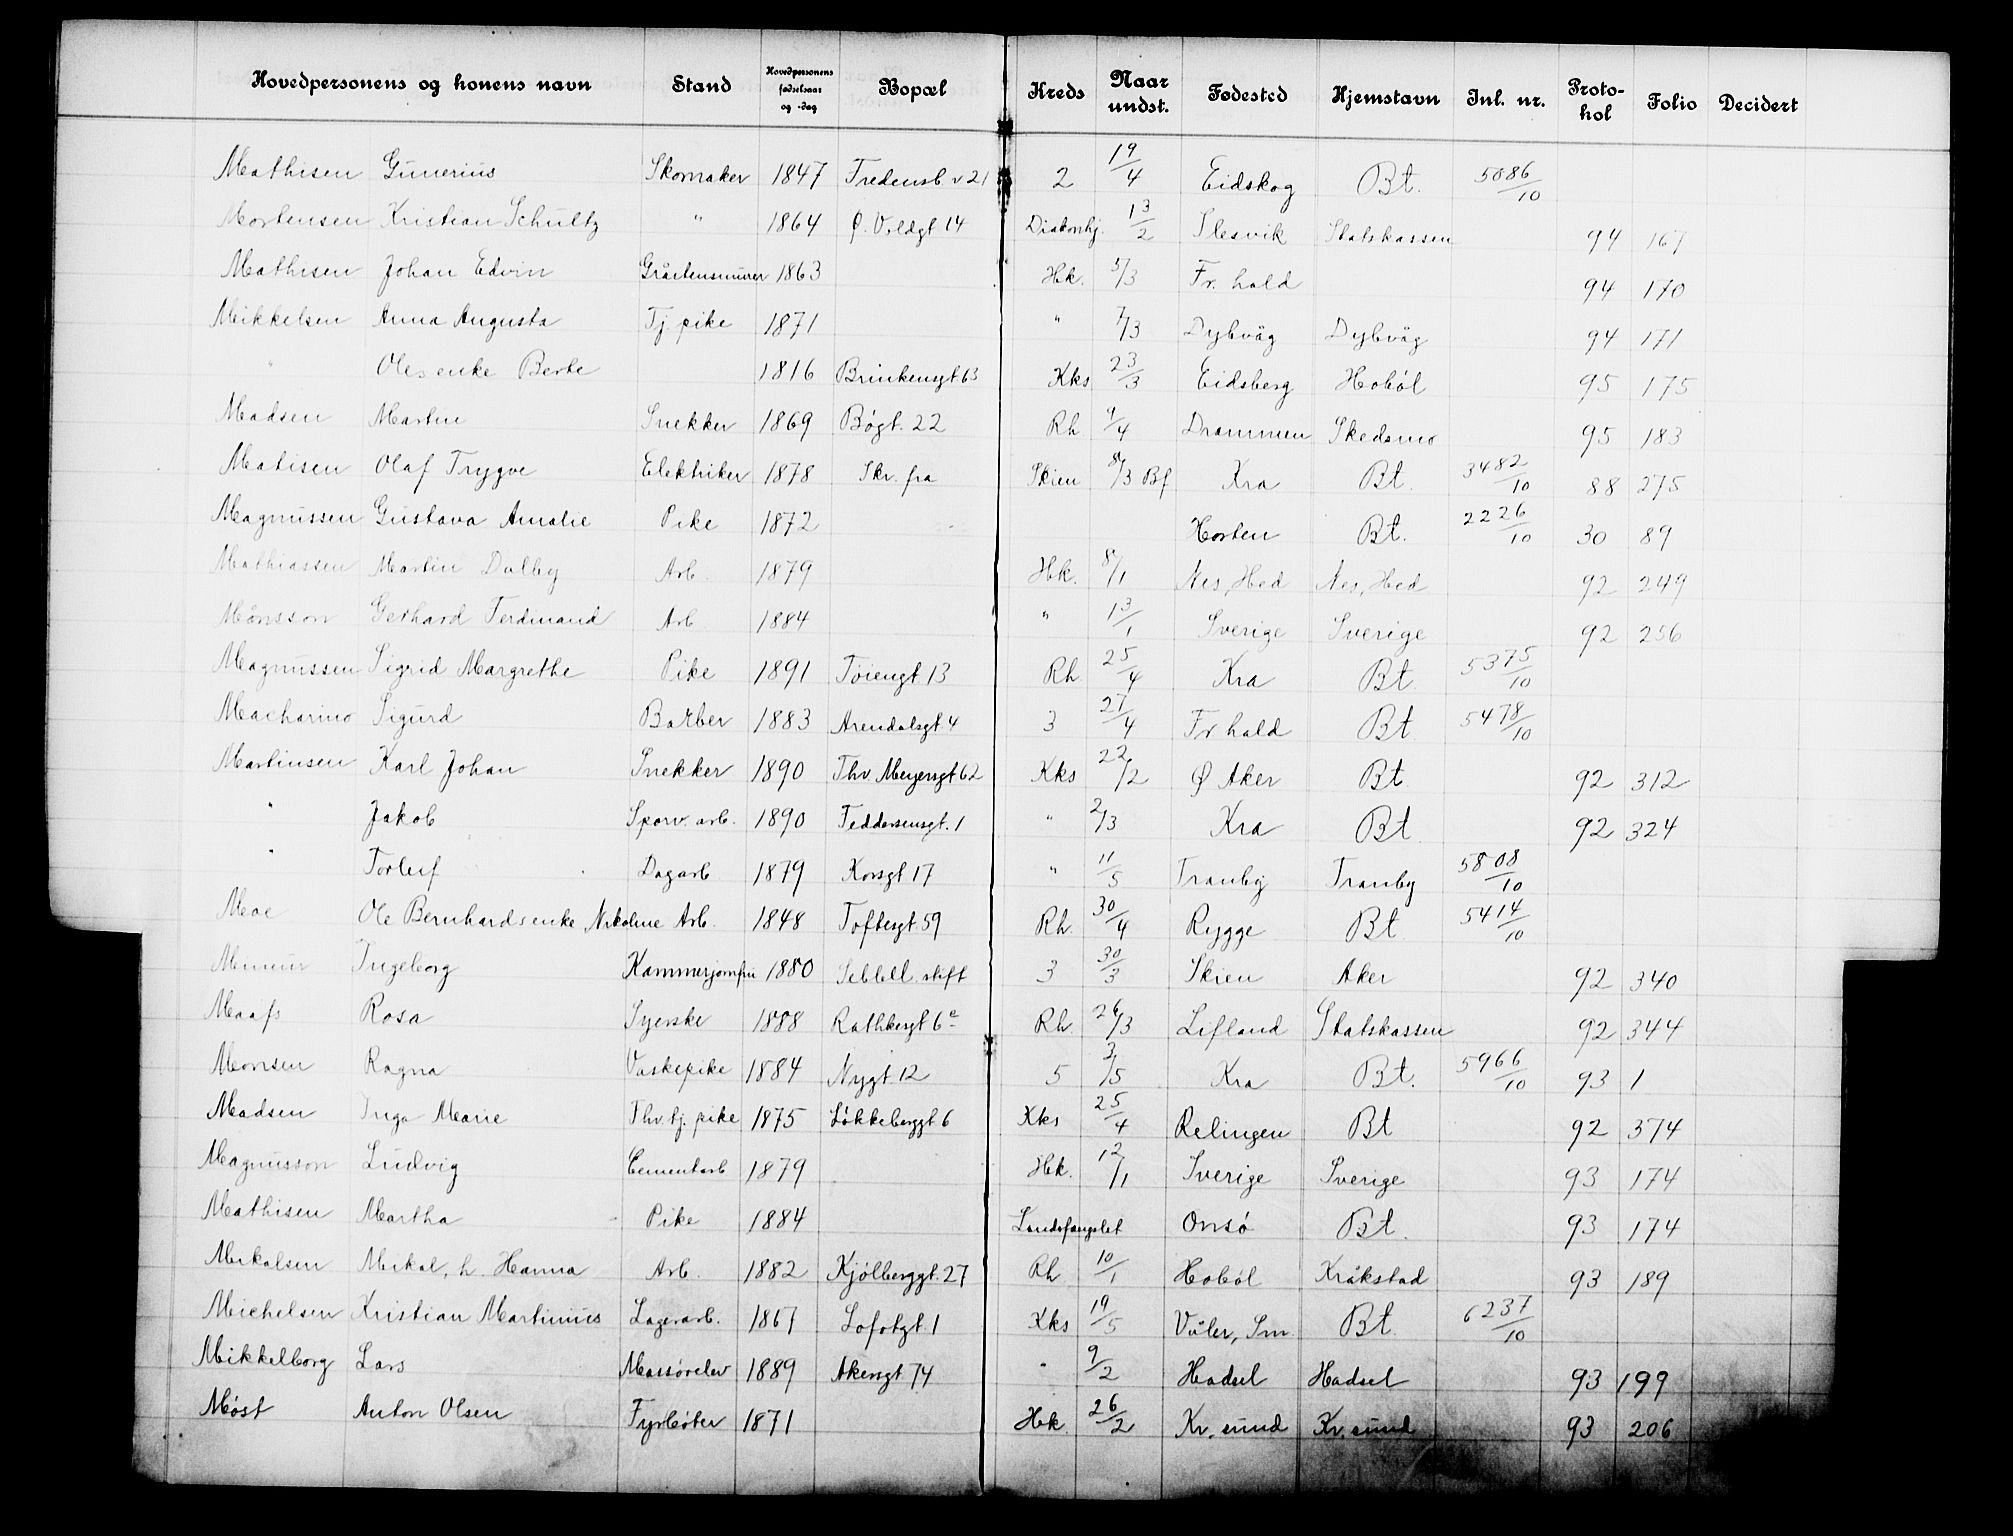 Hovedpersonens og konens navn Stand Hovedpersonens fødselsaar og -dag Bopæl Kreds Naar undst. Fødested Hjemstavn Inl. nr. Protokol Folio Decidert
Mathisen Gunerius Skomaker 1847 Fredensb v 21 2 19/4 Eidskog Bt. 5086/10
Mortensen Kristian Schultz " 1864 Ø. Voldgt 14 Diakonhj. 13/2 Slesvik Statskassen 94 167
Mathisen Johan Edvin Gråstensmurer 1863 Hk. 5/3 Fr. hald 94 170
Mikkelsen Anna Augusta Tj pike 1871 " 7/3 Dybvåg Dybvåg 94 171
" Oles enke Berte 1816 Brinkensgt 63 Kks 23/3 Eidsberg Hobøl 95 175
Madsen Martin Snekker 1869 Bøgt. 22 Rh 9/4 Drammen Skedsmo 95 183
Matisen Olaf Trygve Elektriker 1878 Skr. fra Skien 8/3 Bf Kra Bt. 3482/10 88 275
Magnussen Gustava Amalie Pike 1872 Horten Bt. 2226/10 30 89
Mathiassen Martin Dalby Arb. 1879 Hk. 8/1 Nes, Hed Nes, Hed 92 249
Månsson Gerhard Ferdinand Arb 1884 " 13/1 Sverige Sverige 92 256
Magnussen Sigrid Margrethe Pike 1891 Tøiengt 13 Rh 25/4 Kra Bt 5375/10
Macharino Sigurd Barber 1883 Arendalsgt 4 3 27/4 Fr hald Bt 5478/10
Martinsen Karl Johan Snekker 1890 Thv. Meyersgt 62 Kks 22/2 Ø Aker Bt 92 312
" Jakob Sporv. arb. 1890 Feddersensgt. 1 " 2/3 Kra Bt 92 324
" Torleif Dagarb 1879 Korsgt 17 " 11/5 Tranby Tranby 5808/10
Moe Ole Bernhards enke Nikoline Arb. 1848 Toftesgt. 59 Rh. 30/4 Rygge Bt 5414/10
Ingeborg Kammerjomfru 1880 stift 3 30/3 Skien Aker 92 340
Maafs Rosa Syerske 1888 Rathkesgt 6 Rh 26/3 Lifland Statskassen 92 344
Monsen Ragna Vaskepike 1884 Nygt. 12 5 3/5 Kra Bt. 5966/10 93 1
Madsen Inga Marie Thv. tj. pike 1875 Løkkeberggt 6 Kks 25/4 Relingen Bt 92 374
Magnusson Ludvig Cementarb 1879 Hk. 12/1 Sverige Sverige 93 174
Mathisen Martha Pike 1884 Landsfængslet Onsø Bt. 93 174
Mikalsen Mikal, h. Hanna Arb. 1882 Kjølberggt. 27 Rh 10/1 Hobøl Kråkstad 93 189
Michelsen Kristian Martinius Lagerarb. 1867 Lofotgt. 1 Kks 19/5 Våler, Sm. Bt 6237/10
Mikkelborg Lars Massørelev 1889 Akersgt 74 " 9/2 Hadsel Hadsel 93 199
Møst Anton Olsen Fyrbøter 1871 Hk 26/2 Kr. sund Kr. sund 93 206